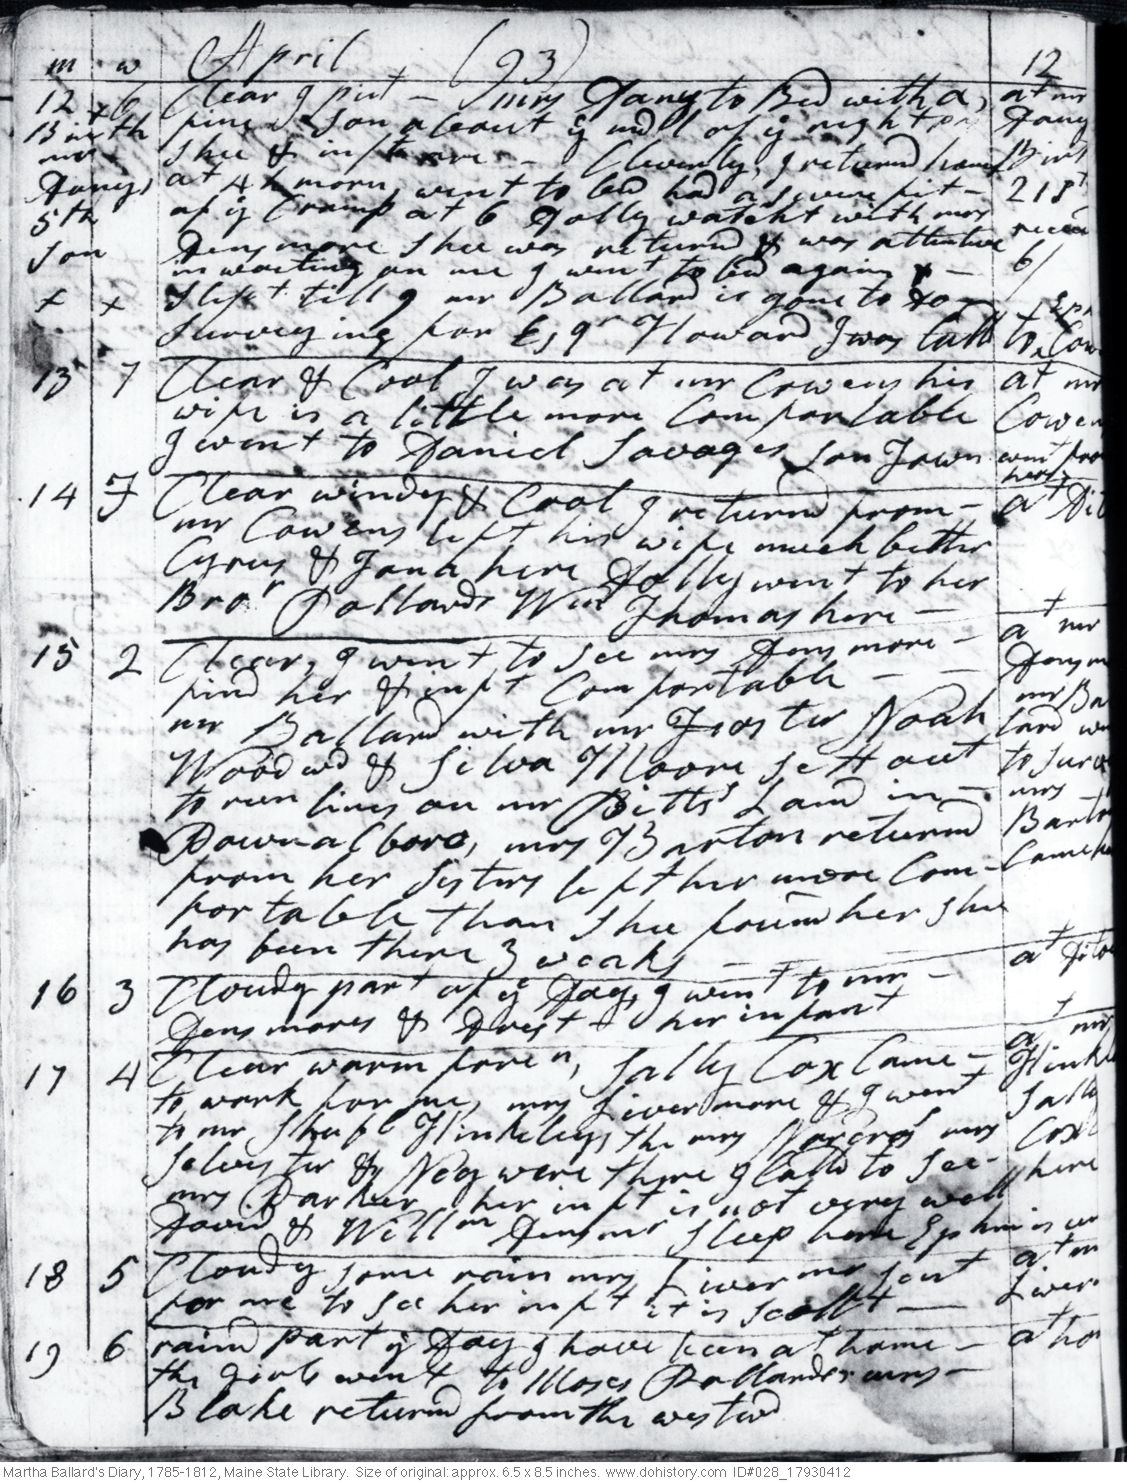 m w April (93) 12
12 x 6 Clear I put mrs Dany to Bed with a at mr
Birth fine Son about ye mdl of ye night Dany
mr Shee & inft are Cleverly, I returnd home Birt
Danys at 4 h morn, went to bed had a severe fit 218t
5th of ye Cramp at 6 Dolly watcht with mrs receivd
Son Densmore Shee was returnd & was attentive 6/
in waiting on me I went to bed again x
x x Slept till 9 mr Ballard is gone to do
Surveying for Esqr Howard I was Calld to Eph Cow
13 7 Clear & Cool I was at mr Cowens his at mr
wife is a little more Comfortable Cowen
I went to Daniel Savages Son Jown went from here
14 F Clear windy & Cool I returnd from at Dit
mr Cowens left his wife much better
Cyrus & Jona here Dolly went to her
Bror Pollards Wm Thomas here
15 2 Clear, I went to see mrs Densmore at mr
find her & inft Comfortable Densm
mr Ballard with mr Foster Noah mr Bal
Woodwd & Silva Moore sett out lard wen
to run lines on mr Bitts Land in to surv
Pownalboro, mrs Barton returnd mrs Barto
from her Sisters left her more Com- Came he
fortable than Shee found her Shee
has been there 3 weaks
16 3 Cloudy part of ye Day, I went to mr at Dito
Densmores & Drest her infant
17 4 Clear warm foren, Sally Cox Came at mr
to work for me, mrs Livermore & I went Hinkl
to mr Shubl Hinkleys the mrs Norcros mrs Sally
Selvester & Ney were there I Calld to See Cox
mrs Parker her inft is not very well here
David & Willm Densmr Sleep here Ephm is
18 5 Cloudy some rain mrs Livermr sent at m
for me to see her inft it is scollt Liver
19 6 raind part ye Day I have been at home at ho
the girls went to Moses Pollards mrs
Blake returnd from the westwd
Martha Ballard's Diary, 1785-1812, Maine State Library. Size of original: approx. 6.5 x 8.5 inches. www.dohistory.com ID#028_17930412